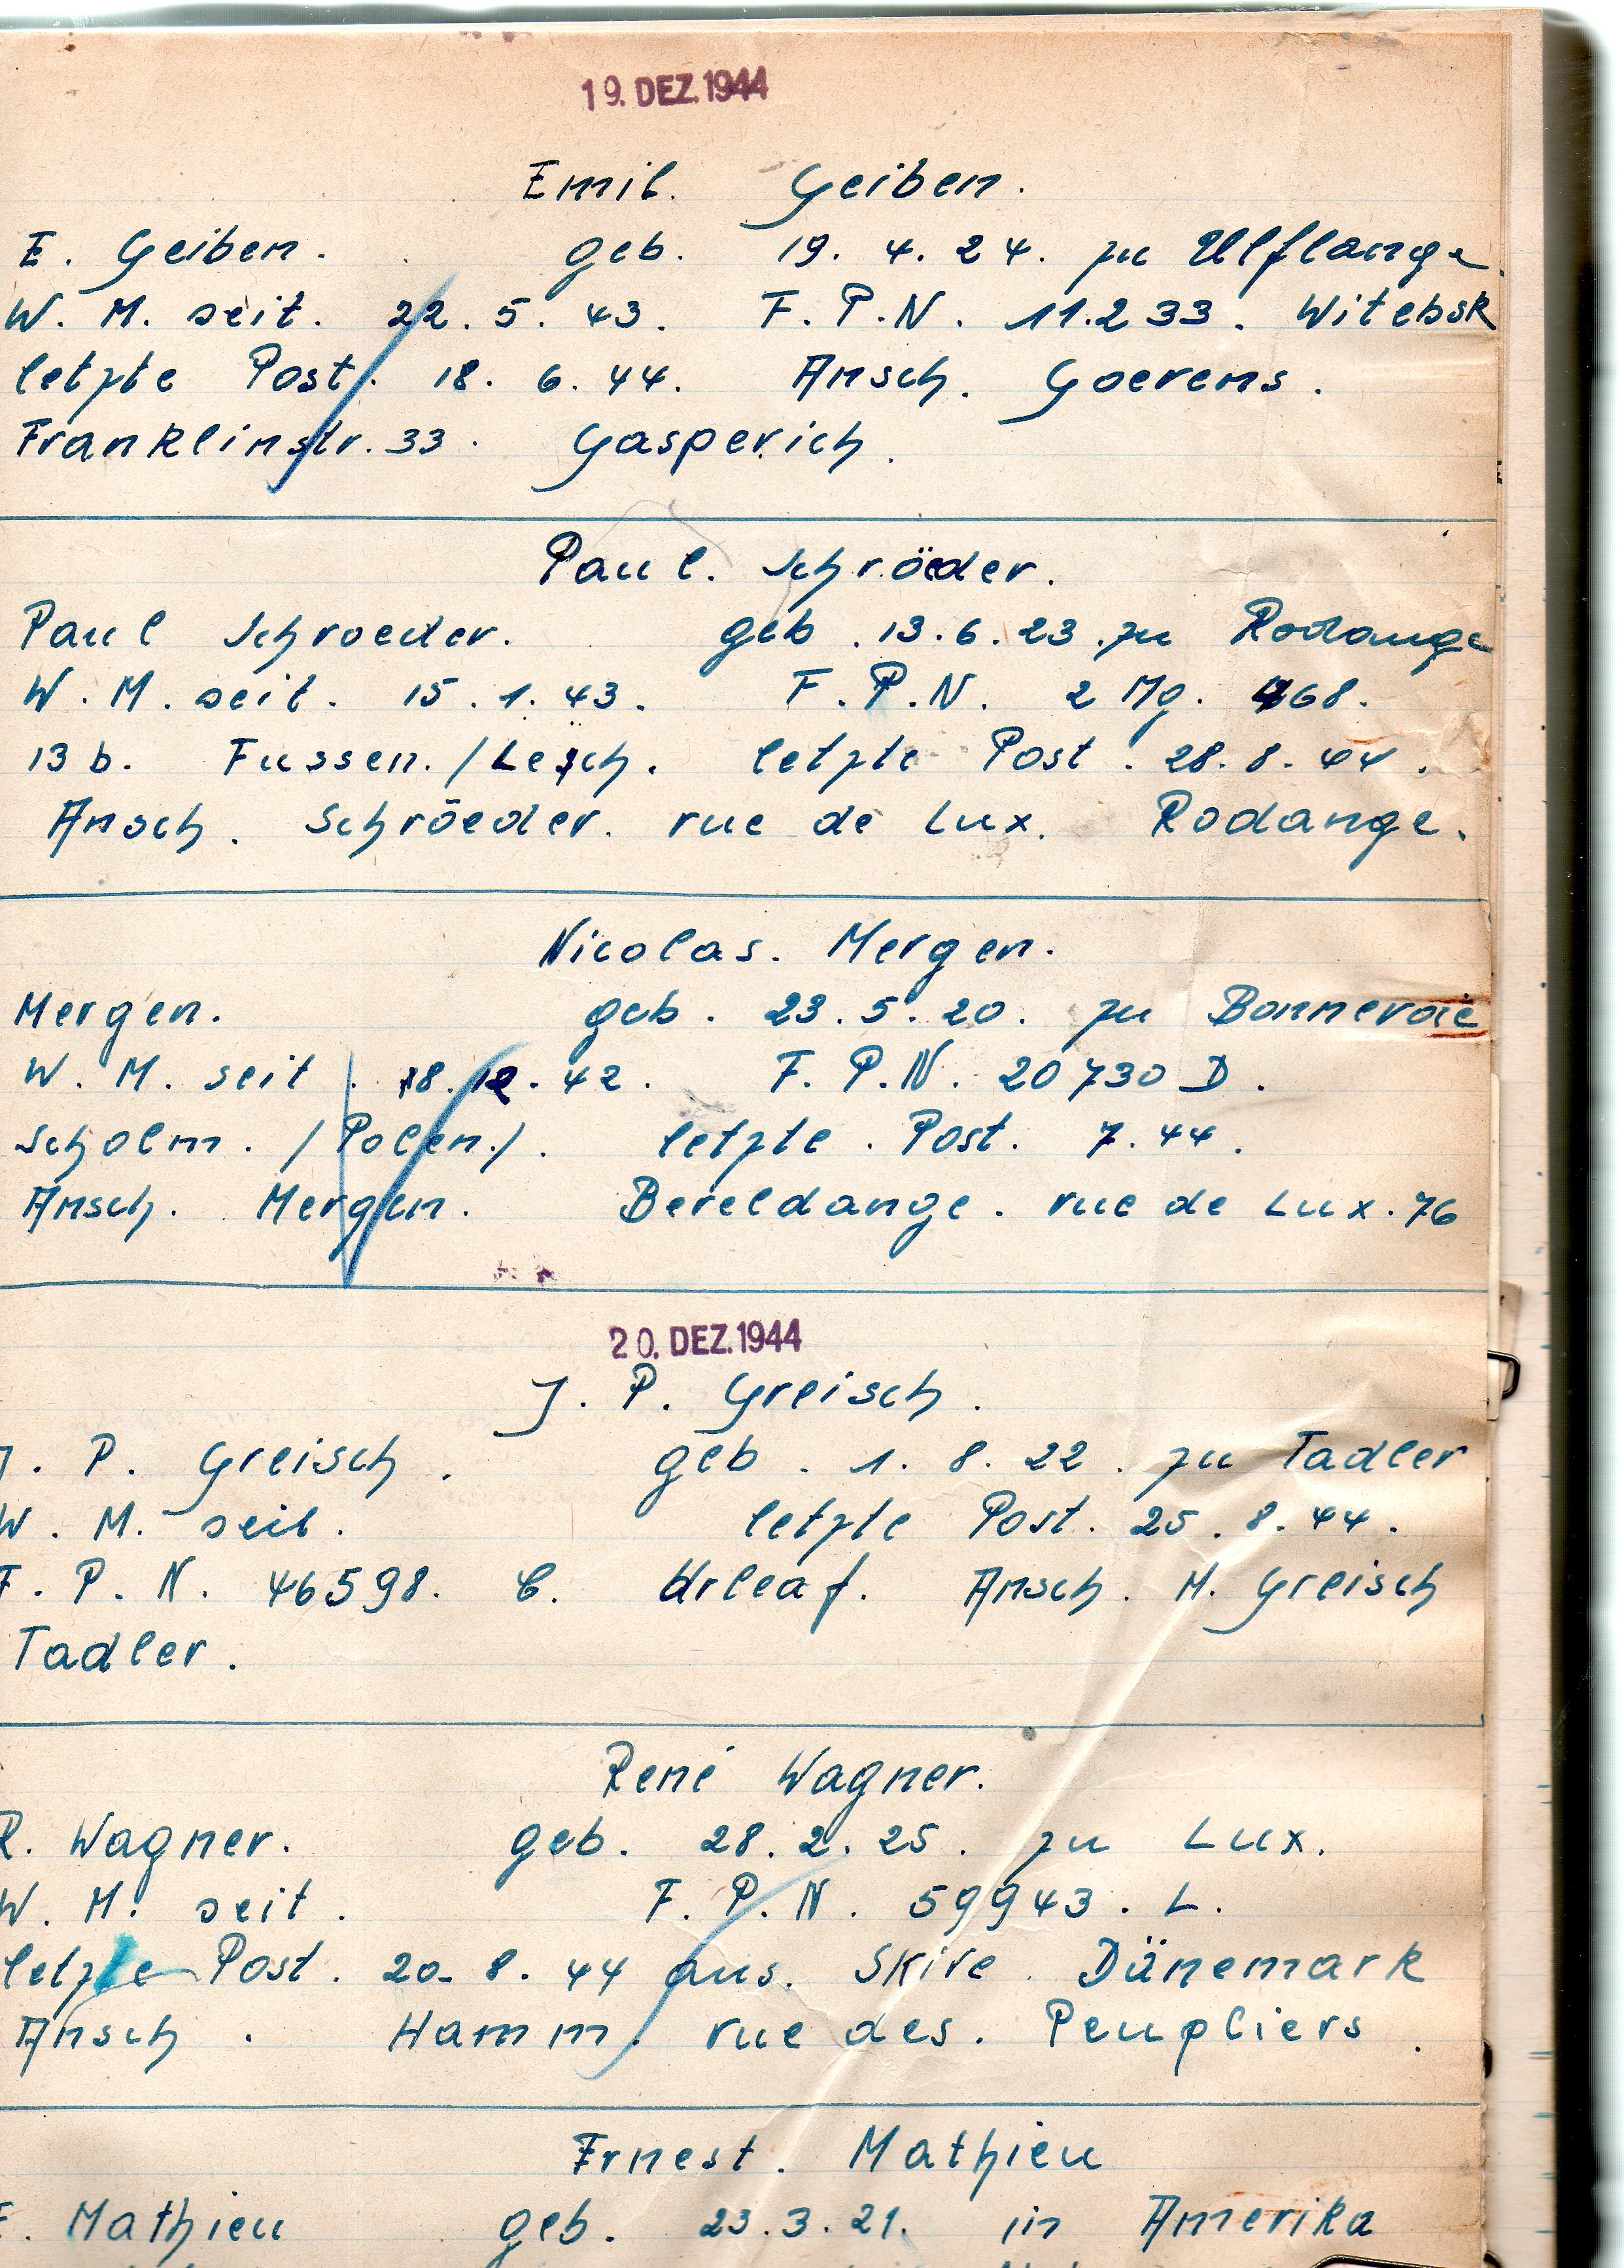 19. DEZ. 1944
Emil. Geiben.
E. Geiben. geb. 19. 4. 24. zu Ulflange
W. M. seit. 22. 5. 43. F. P. N. 11.233. Witebsk
letzte Post. 18. 6. 44. Ansch. Goerens.
Franklinstr. 33. Gasperich.
Paul. Schröeder.
Paul Schroeder. geb. 13. 6. 23. zu Rodange
W. M. seit. 15. 1. 43. F. P. N. 2 Mg. 468.
13 b. Fussen. / Lesch. letzte Post. 28. 8. 44.
Ansch. Schröeder. rue de Lux. Rodange.
Nicolas. Mergen.
Mergen. geb. 23. 5. 20. zu Bonnevoie
W. M. seit. 18. 12. 42. F. P. N. 20730 D.
Scholm. / Polen /. letzte. Post. 7. 44.
Ansch. Mergen. Bereldange. rue de Lux. 76
20. DEZ. 1944
J. P. Greisch.
J. P. Greisch. geb. 1. 8. 22. zu Tadler
W. M. seit. letzte Post. 25. 8. 44.
F. P. N. 46598. C. Urleaf. Ansch. M. Greisch
Tadler.
René Wagner.
R. Wagner. geb. 28. 2. 25. zu Lux.
W. M. seit. F. P. N. 59943. L.
letzte Post. 20. 8. 44 aus. Skive. Dänemark
Ansch. Hamm. rue des. Peupliers.
Ernest. Mathieu
E. Mathieu geb. 23. 3. 21. in Amerika